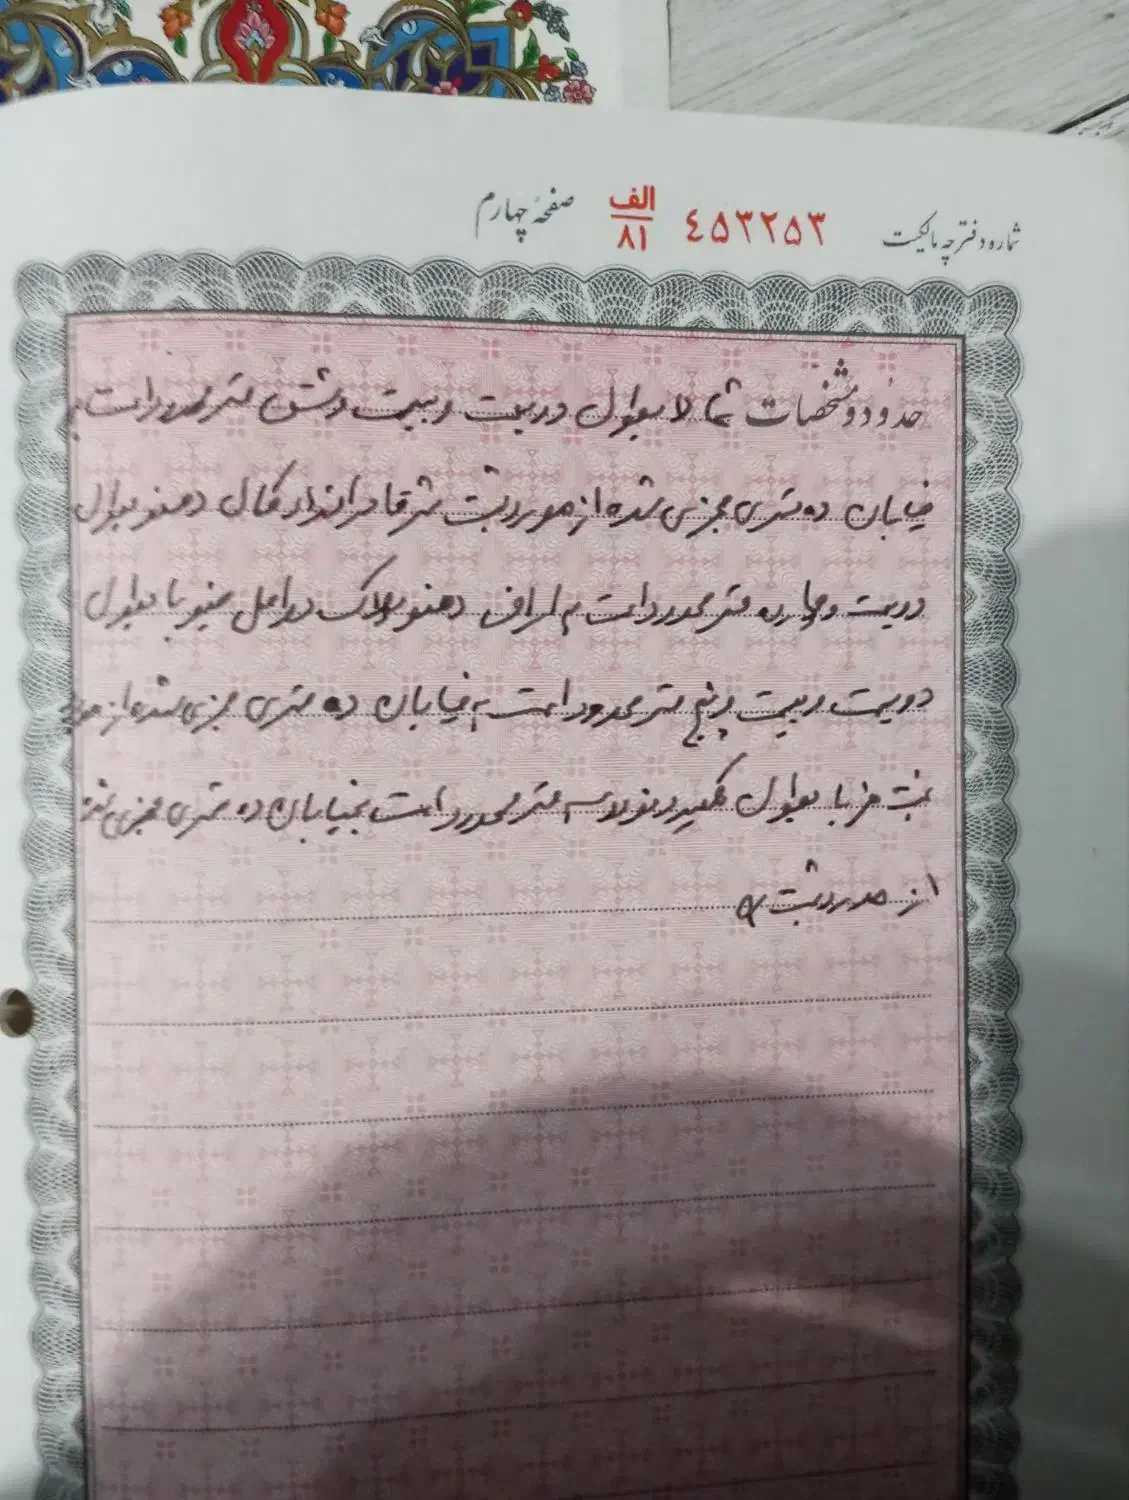 شماره دفترچه مالکیت ٤٥٣٢٥٣ الف/٨١ صفحهٔ چهارم
حدود و مشخصات شمالا بطول دویست و بیست و شش متر محدود است به
خیابان ده متری مجزی شده از مورد ثبت شرقا در امتداد کال دهنو بطول
دویست و چهارده متر محدود است به اراضی دهنو پلاک دو اصلی جنوبا بطول
دویست و بیست و پنج متر محدود است به خیابان ده متری مجزی شده از مورد
ثبت غربا بطول یکصد و نود و سه متر محدود است بخیابان ده متری مجزی شده
از مورد ثبت